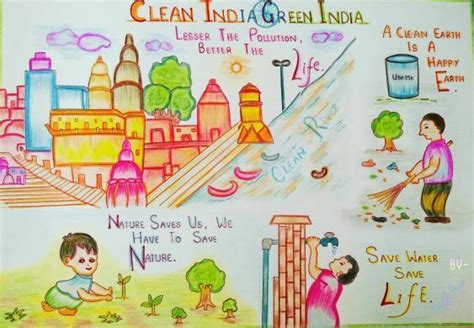 CLEAN INDIA GREEN INDIA
LESSER THE POLLUTION,
BETTER THE
Life.
A CLEAN EARTH
IS A
HAPPY
EARTH.
Use Me
CLEAN RIVER
NATURE SAVES US, WE
HAVE TO SAVE
NATURE.
SAVE WATER
SAVE
Life.
BY-